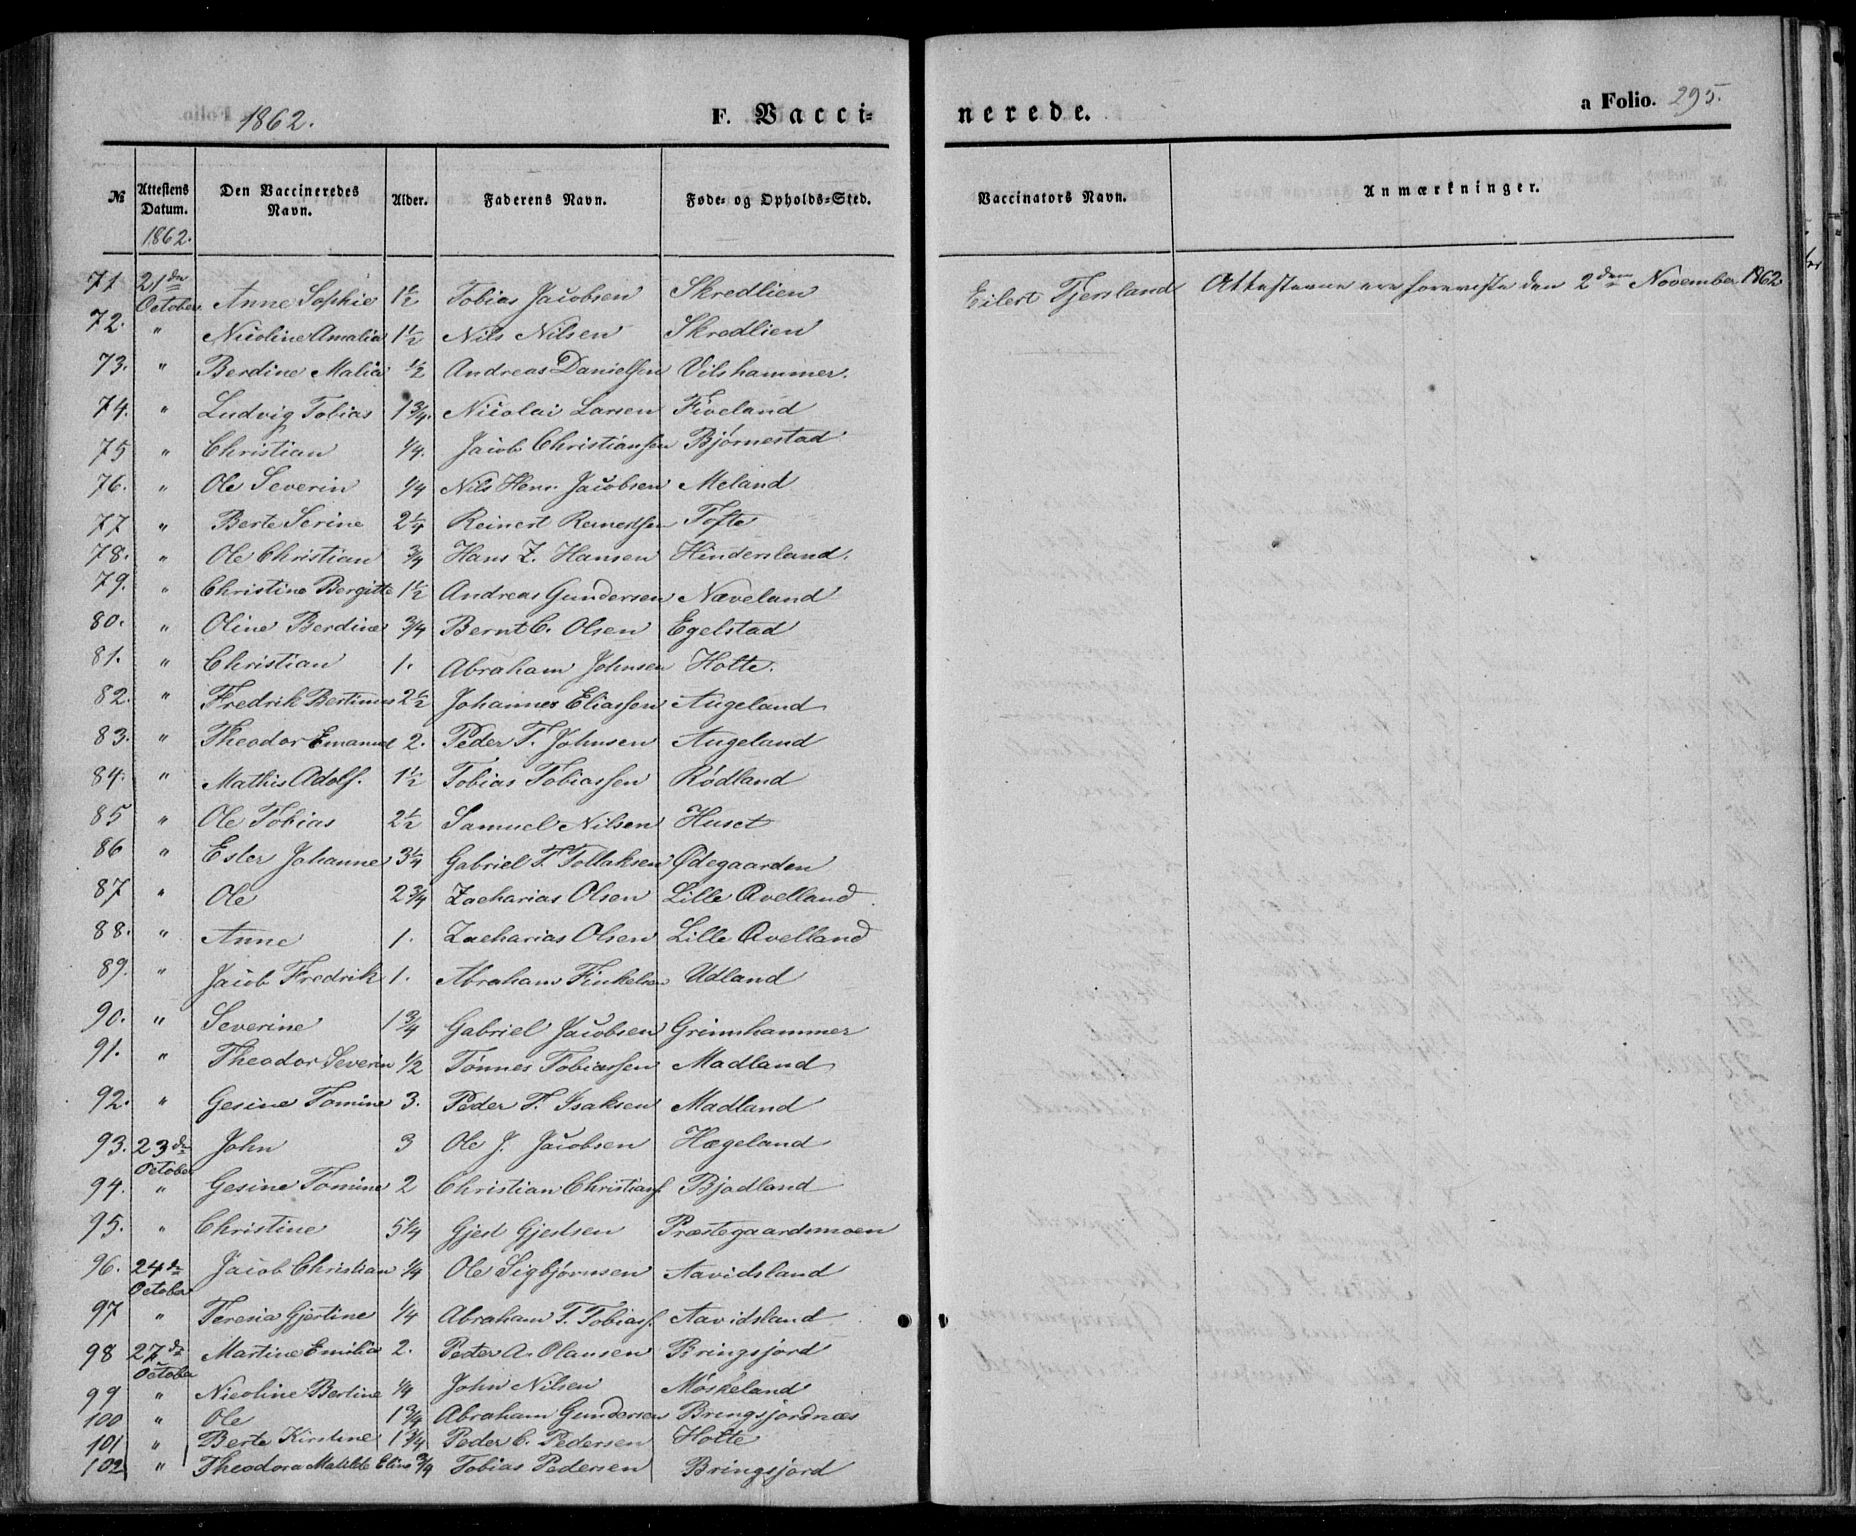 1862. F. Vacci= nerede. a Folio. 295.
№ Attestens Datum. Den Vaccineredes Navn. Alder. Faderens Navn. Føde- og Opholds-Sted. Vaccinators Navn. Anmærkninger.
1862.
71 21de October Anne Sophie 1½ Tobias Jacobsen Skredlien Eilert Tjersland Attesterne ere foreviste den 2den November 1862
72. " Nicoline Amalia 1½ Nils Nilsen Skredlien
73. " Berdine Malia ½ Andreas Danielsen Vilshammer.
74. " Ludvig Tobias 1¾. Nicolai Larsen Fiveland
75 " Christian ¼. Jacob Christiansen Bjørnestad
76. " Ole Severin ¼ Nils Henr. Jacobsen Meland
77 " Berte Serine 2¼ Reinert Reinertsen Tofte
78. " Ole Christian ¾ Hans Z. Hansen Hindersland.
79. " Christine Bergitte 1½ Andreas Gundersen Næveland
80. " Oline Berdine ¾ Bernt C. Olsen Egelstad
81. " Christian 1. Abraham Johnsen Holte.
82. " Fredrik Bertinus 2½ Johannes Eliassen Augeland
83. " Theodor Emanuel 2. Peder T. Johnsen Augeland
84. " Mathis Adolf. 1½ Tobias Tobiassen Rødland
85 " Ole Tobias 2½ Samuel Nilsen Huset
86 " Ester Johanne 3¼ Gabriel T. Tollaksen Ødegaarden
87 " Ole 2¾ Zacharias Olsen Lille Qvelland
88. " Anne 1. Zacharias Olsen Lille Qvelland
89. " Jacob Fredrik 1. Abraham Finkelsen Udland
90. " Severine 1¾ Gabriel Jacobsen Grimhammer
91. " Theodor Severin ½ Tønnes Tobiassen Madland
92. " Gesine Tomine 3. Peder T. Isaksen Madland
93. 23de October John 3 Ole J. Jacobsen Hægeland
94. " Gesine Tomine 2 Christian Christians. Bjadland
95. " Christine 5¼ Gjest Gjestsen Præstegaardsmoen
96. 24de October Jacob Christian ¼ Ole Sigbjørnsen Aavidsland
97 " Teresia Gjertine ¼ Abraham T. Tobiass. Aavidsland
98 27de October Martine Emilie 2. Peter A. Olausen Bringsjord
99 " Nicoline Bertine ¼ John Nilsen Møskeland
100 " Ole 1¾ Abraham Gundersen Bringsjordnæs
101 " Berte Kirstine 1¾ Peder C. Pedersen Holte
102 " Theodora Matilde Eline ¾ Tobias Pedersen Bringsjord